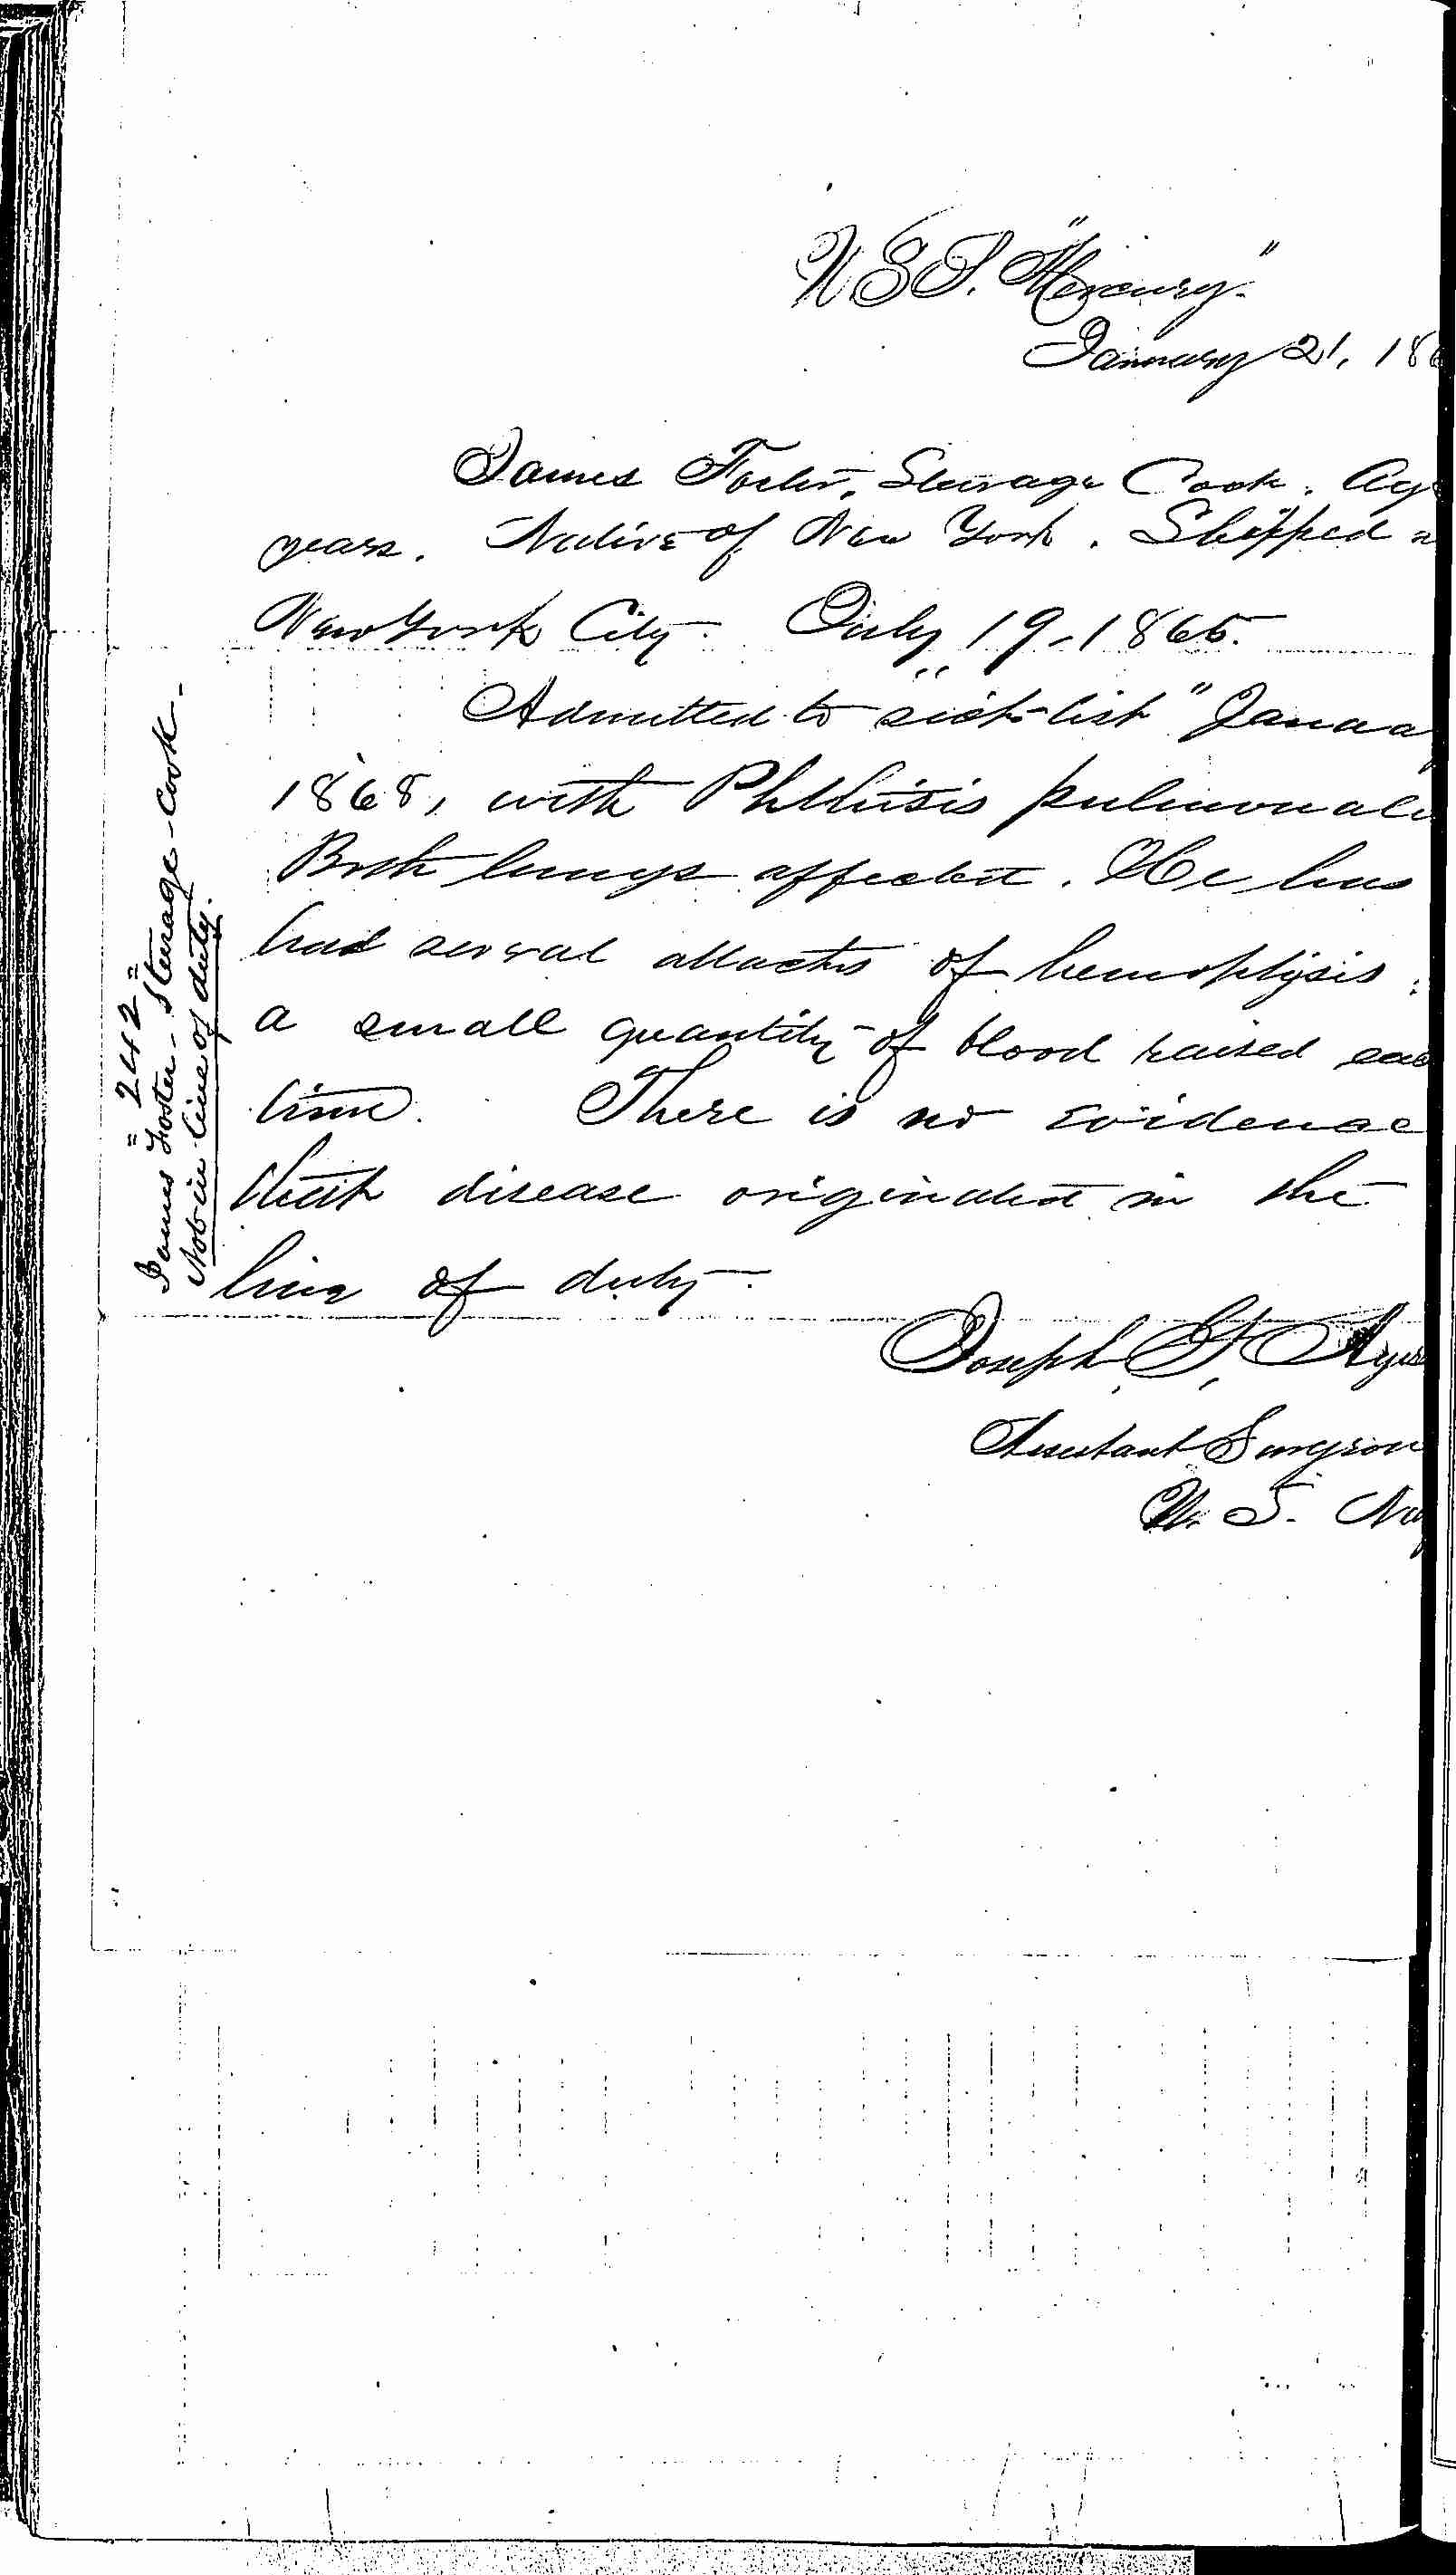 U.S.S. "Mercury."
January 21, 186
James Foster, Steerage Cook. Ag
years. Native of New York. Shipped
New York City. July 19, 1865.
Admitted to "sick-list" Janua
1868, with Phthisis pulmonali
Both lungs affected. He has
had several attacks of hemoptysis;
a small quantity of blood raised eac
time. There is no evidence
that disease originated in the
line of duty.
Joseph G. Ayers
Assistant Surgeon
U. S. Na
= 242 =
James Foster - Steerage-Cook -
Not in line of duty.